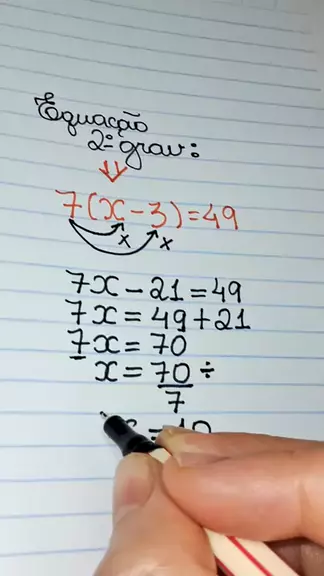 Equação
2º grau:
7(x-3)=49
x x
7x-21=49
7x=49+21
7x=70
x=70÷
7